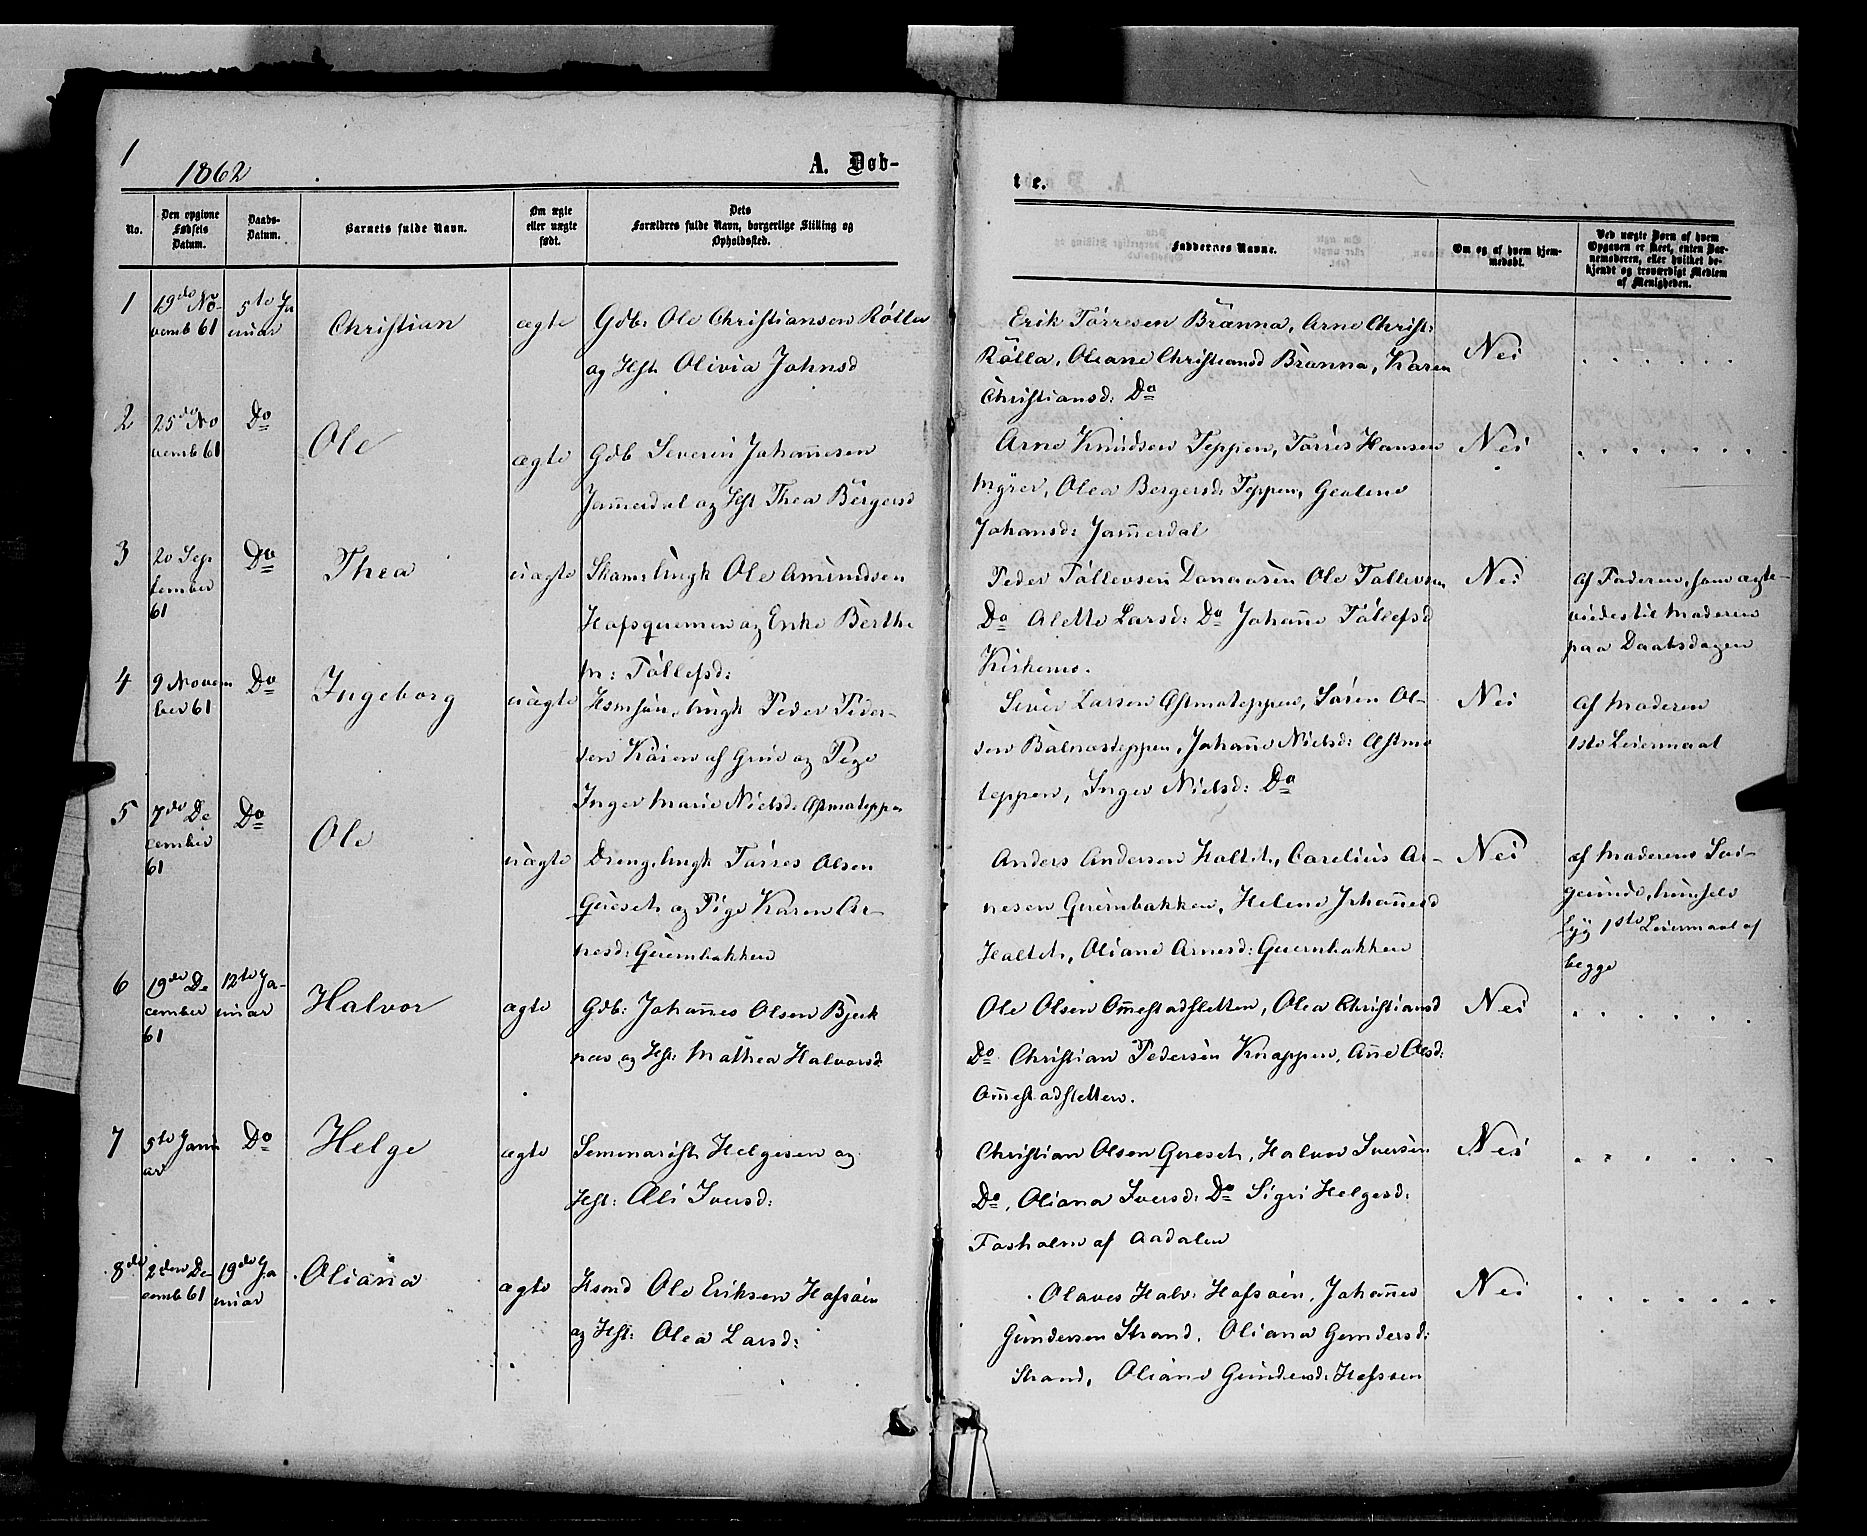 1
1862
A. Døb-
te.
No.
Den opgivne Fødsels Datum.
Daabs-Datum.
Barnets fulde Navn.
Om ægte eller uægte født.
Dets Forældres fulde Navn, borgerlige Stilling og Opholdssted.
Faddernes Navne.
Om og af hvem hjem-medøbt.
Ved uægte Børn af hvem Opgaven er skeet, enten Bar-nemoderen, eller hvilket be-kjendt og troværdigt Medlem af Menigheden.
1
19de No-
vemb 61
5te Ja
nuar
Christian
ægte
Gdb. Ole Christiansen Rølla
og Hst. Olivia Johnsd
Erik Torresen Brænna, Arne Christ:
Rølla, Oliane Christiansd Brænna, Karen
Christiansd: Do
Nei
2
25de No
vemb 61
Do
Ole
ægte
Gdb Severin Johannesen
Jammerdal og Hst Thea Bergersd
Arne Knudsen Teppen, Torris Hansen
Myrer, Olea Bergersd: Teppen,
Johansd: Jammerdal
Nei
3
20 Sep
tember
61
Do
Thea
uægte
Ole Amundsen
og Enke Berthe
M: Tollefsd:
Peder Tollevsen Ole Tollevsen
Do Alette Larsd: Do Johanne Tollefsd
Nei
Af Faderen, som ægte-
viedes til Moderen
paa Daabsdagen
4
9 Novem
ber 61
Do
Ingeborg
uægte
Peder Peder-
sen af Grue og Pige
Inger Marie Nielsd: Østmoteppen
Siver Larsen Østmoteppen, Søren Ol-
sen Balnesteppen, Johanne Nielsd: Østmo
teppen, Inger Nielsd: Do
Nei
Af Moderen
1ste Leiermaal
5
7de De
cember
61
Do
Ole
uægte
Dreng, Ungk Torres Olsen
Qveset, og Pige Karen Ar-
nesd: Qvernbakken
Anders Andersen Haltet, Carelius Ar-
nesen Qvernbakken, Helene Johannesd
Haltet, Oliane Arnesd: Qvernbakken
Nei
af Moderens
hun selv
syg 1ste Leiermaal af
begge
6
19de De
cember
61
12te Ja-
nuar
Halvor
ægte
Gdb: Johannes Olsen Bjerk
næs og Hst: Mathea Halvorsd
Ole Olsen Ommestadsletten, Olea Christiansd
Do Christian Pedersen Knappen, Anne Olsd:
Ommestadsletten.
Nei
7
5te Janu
ar
Do
Helge
ægte
Seminarist Helgesen og
Hst: Eli Iversd:
Christian Olsen Qveset, Halvor Iversen
Do, Oliana Iversd: Do Sigri Helgesd:
Fosholm af Aadalen
Nei
8de
2den De
cemb 61
19de Ja
nuar
Oliana
ægte
Hsmd Ole Eriksen Hofsøen
og Hst: Olea Larsd:
Olaves Halv: Hofsøen, Johannes
Gundersen Strand, Oliana Gundersd:
Strand, Oliane Gundersd: Hofsøen
Nei